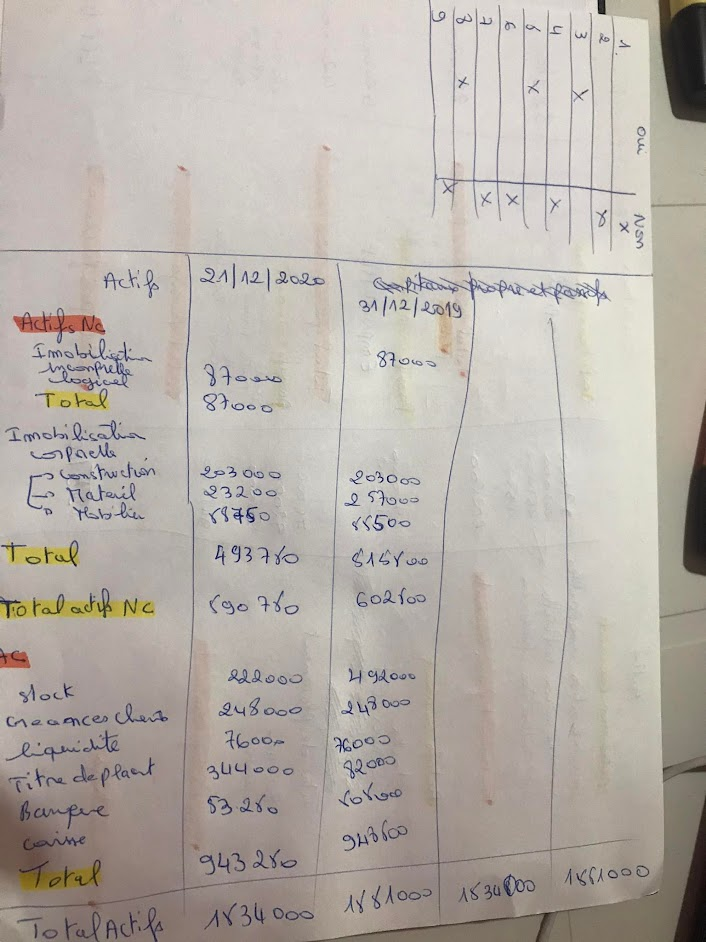 oui Non
1. X
2 X
3 X
4 X
5 X
6 X
7 X
8 X
9 X
Actifs 21/12/2020
31/12/2019
Actifs Nc
Imobilisation
incorporelle 87000
logiciel 87000
Total 87000
Imobilisation
corporelle
Construction 203000 203000
Materiil 23200 257000
Mobilier 58750 55500
Total 493750 515500
Total actifs NC 590750 602500
AC
Stock 222000 492000
Creances client 248000 248000
liquidité 76000 76000
Titre de placet 344000 82000
Banque 53250 50500
caisse
Total 943250 948500
Total Actifs 1534000 1551000 1534000 1551000